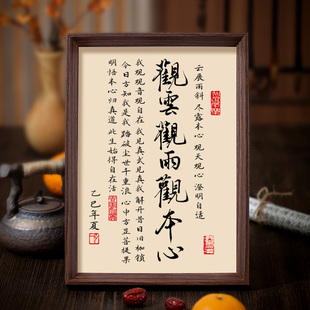 云展雨斜 尽露本心 观天观心 澄明自适
觀雲觀雨觀本心
我观观音观自在 我见真武见真我 解开昔日旧枷锁
今日方知我是我 踏破尘世千重浪 心中方 菩提果
明悟本心归真道 此生始得自在活
乙巳年夏